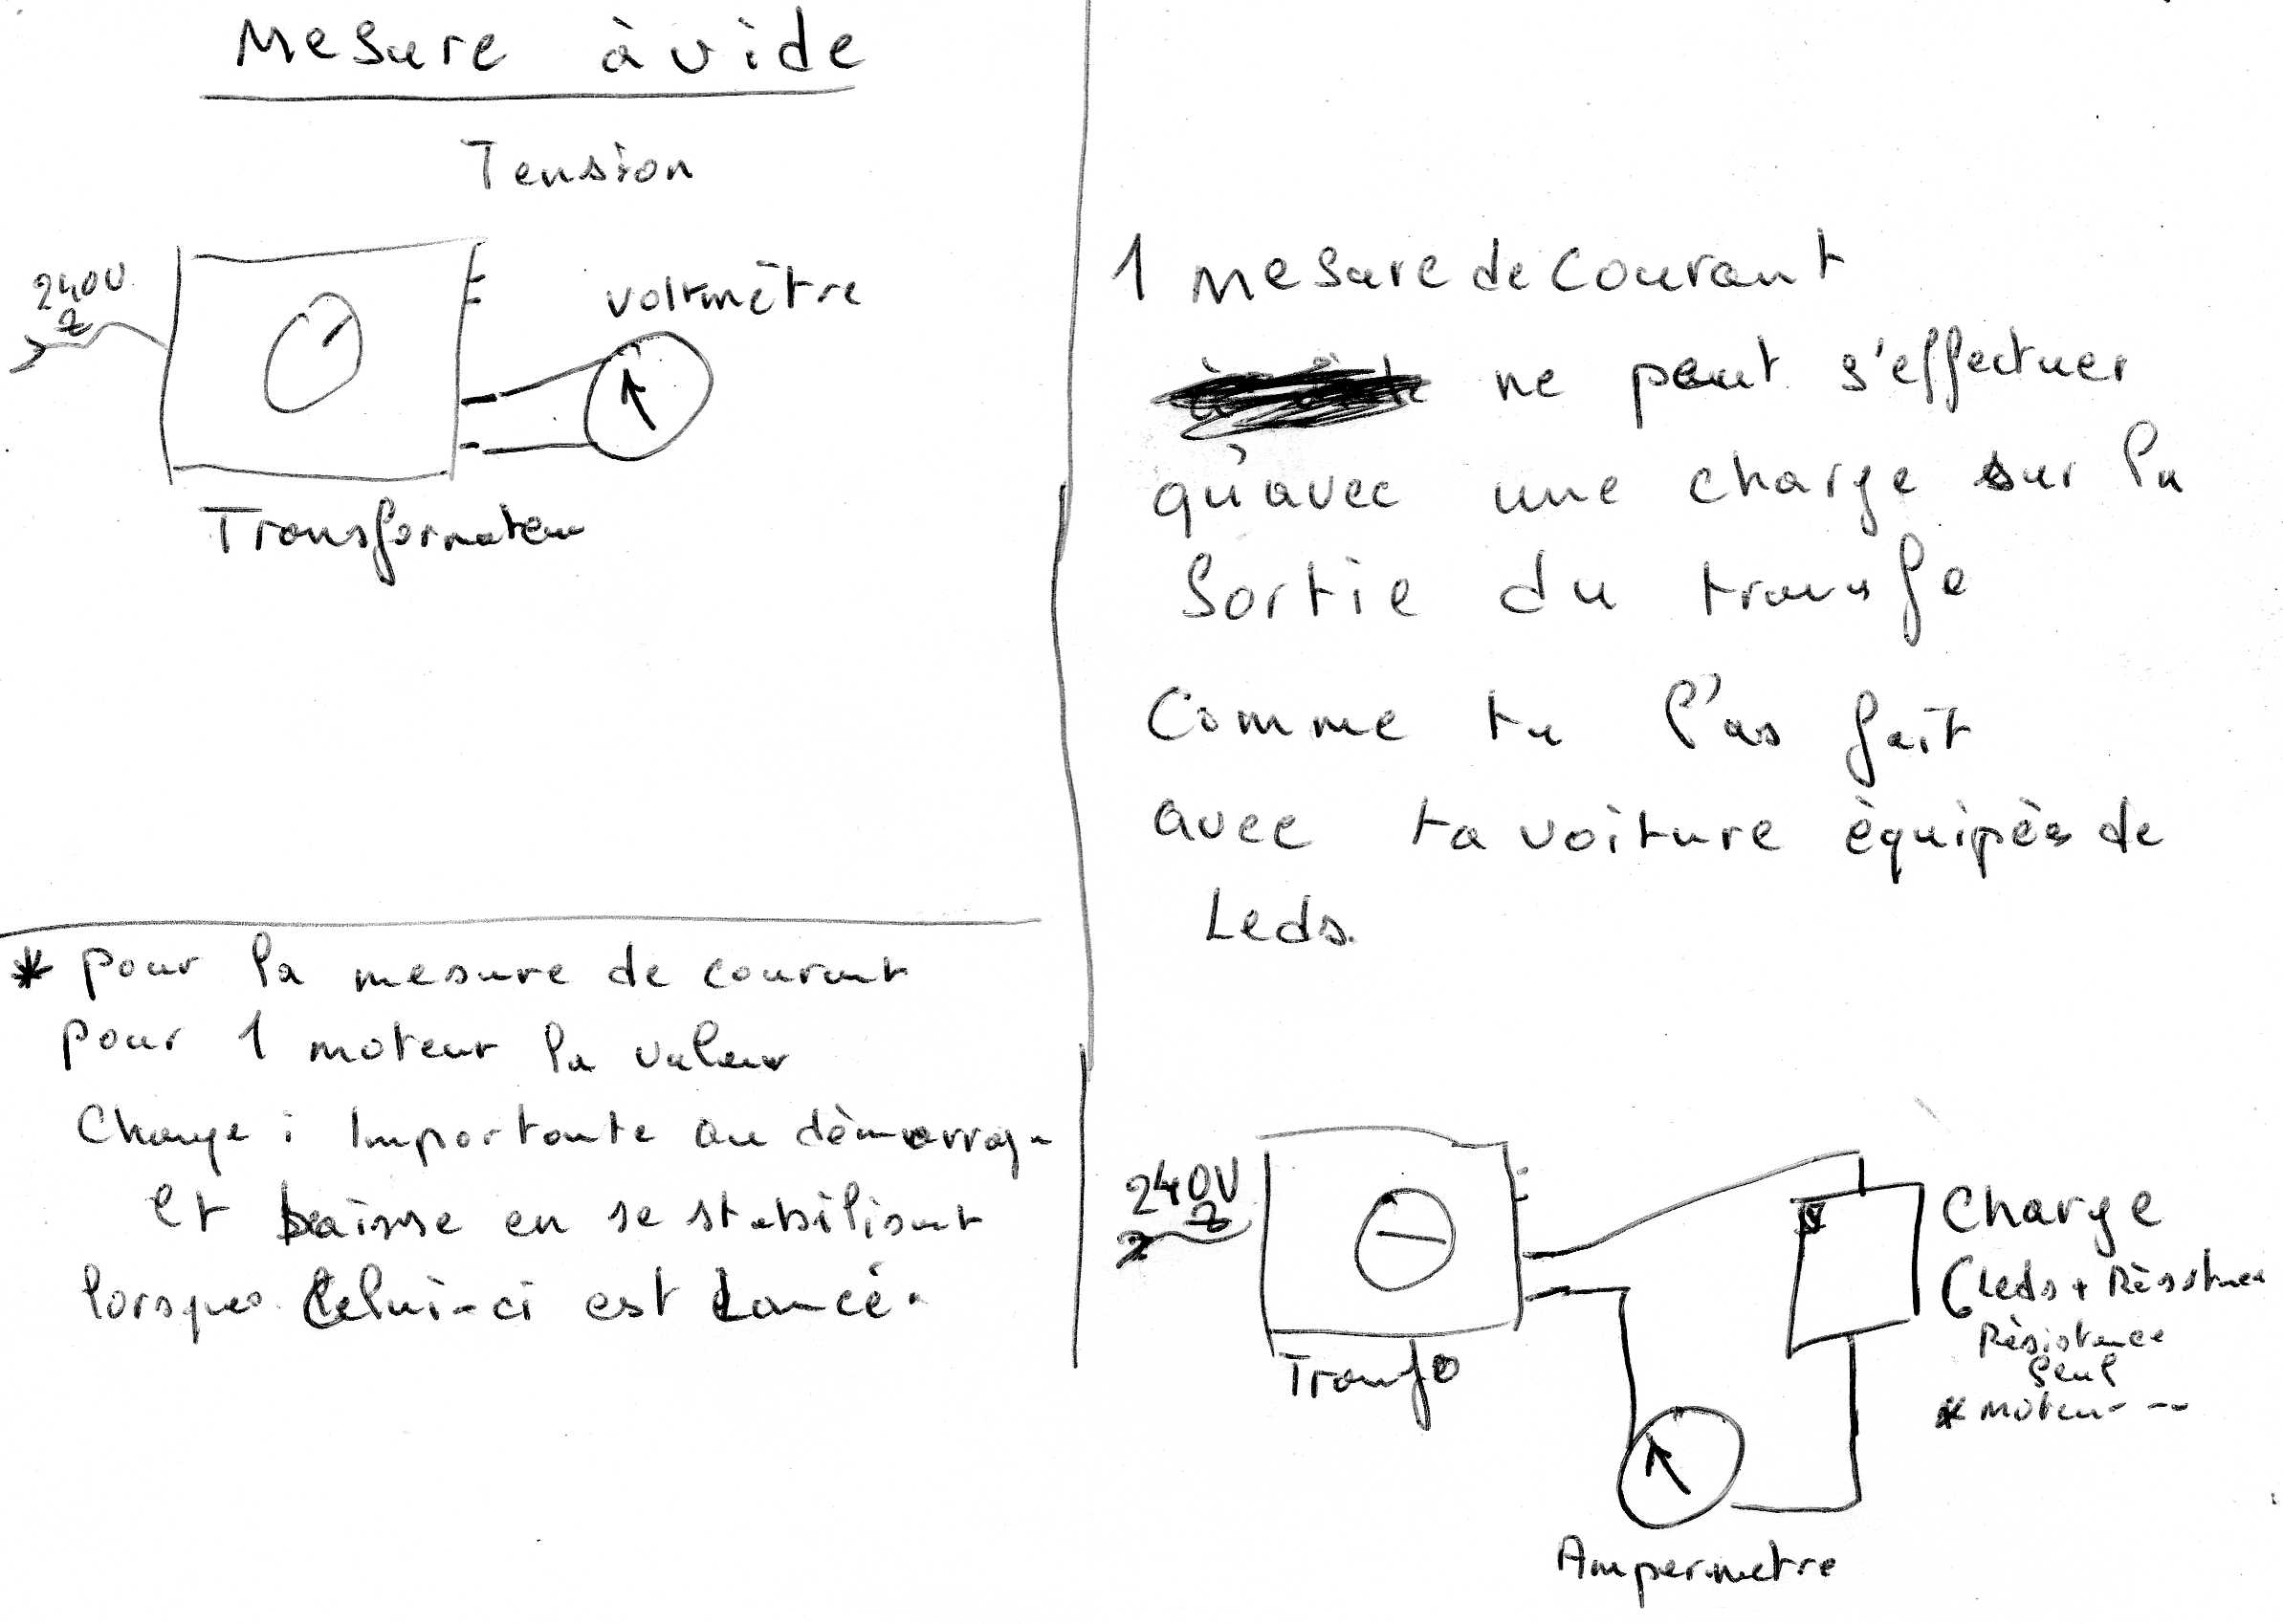 Mesure à vide
Tension
240V
voltmètre
Transformateur
* pour la mesure de courant
pour 1 moteur la valeur
Charge : Importante au démarrage
et baisse en se stabilisant
lorsque Celui-ci est Lancé.
1 mesure de courant
ne peut s'effectuer
qu'avec une charge sur la
Sortie du transfo
Comme tu l'as fait
avec ta voiture équipée de
Leds.
240V
Transfo
Charge
(Leds + Résistance
Résistance
seul
* moteur --
Ampermetre